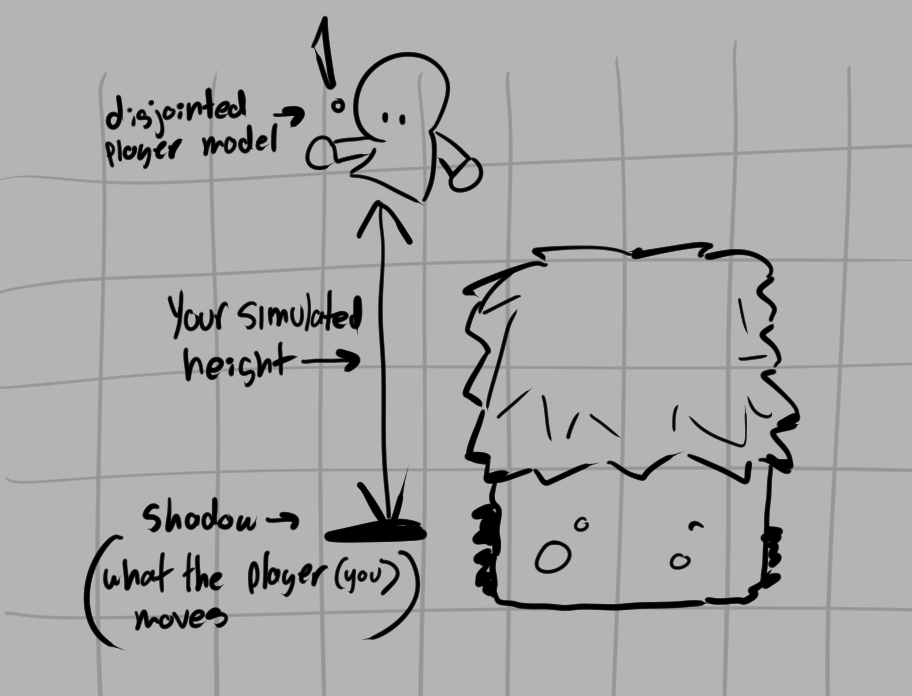 !
disjointed →
player model
Your simulated
height →
shadow →
(what the player (you)
moves)